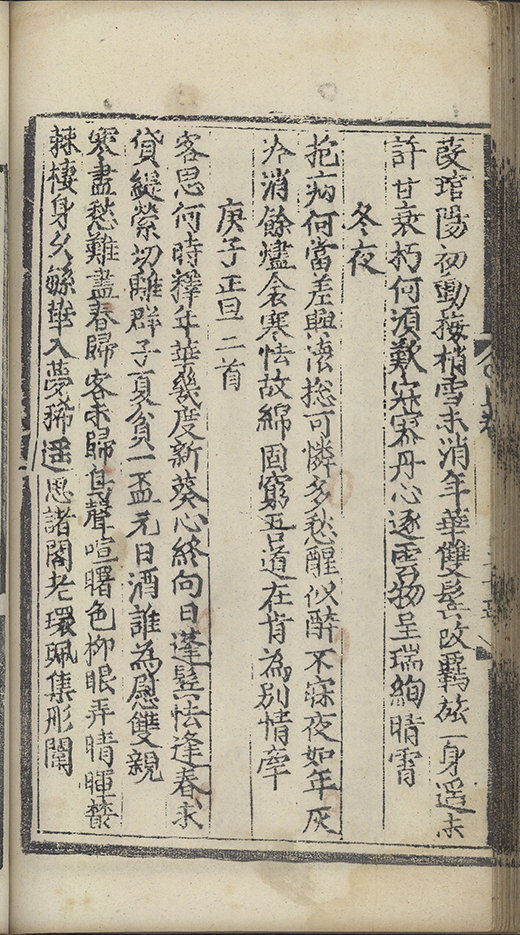 葭琯陽初動梅梢雪未消年華雙鬢改羈旅一身遥未
許甘衰朽何須歎寂寥丹心逐雲物呈瑞絢晴霄
冬夜
抱病何當差興懷捴可憐多愁醒似醉不寐夜如年灰
冷消餘燼衾寒怯故綿固窮吾道在肯為別情牽
庚子正旦二首
客思何時釋年華幾度新葵心終向日蓬鬂怯逢春未
貸緹縈切離群子夏貧一盃元日酒誰為慰雙親
寒盡愁難盡春歸客未歸鳥聲喧曙色柳眼弄晴暉叢
棘棲身久鵷班入夢稀遥思諸閣老環珮集彤闈